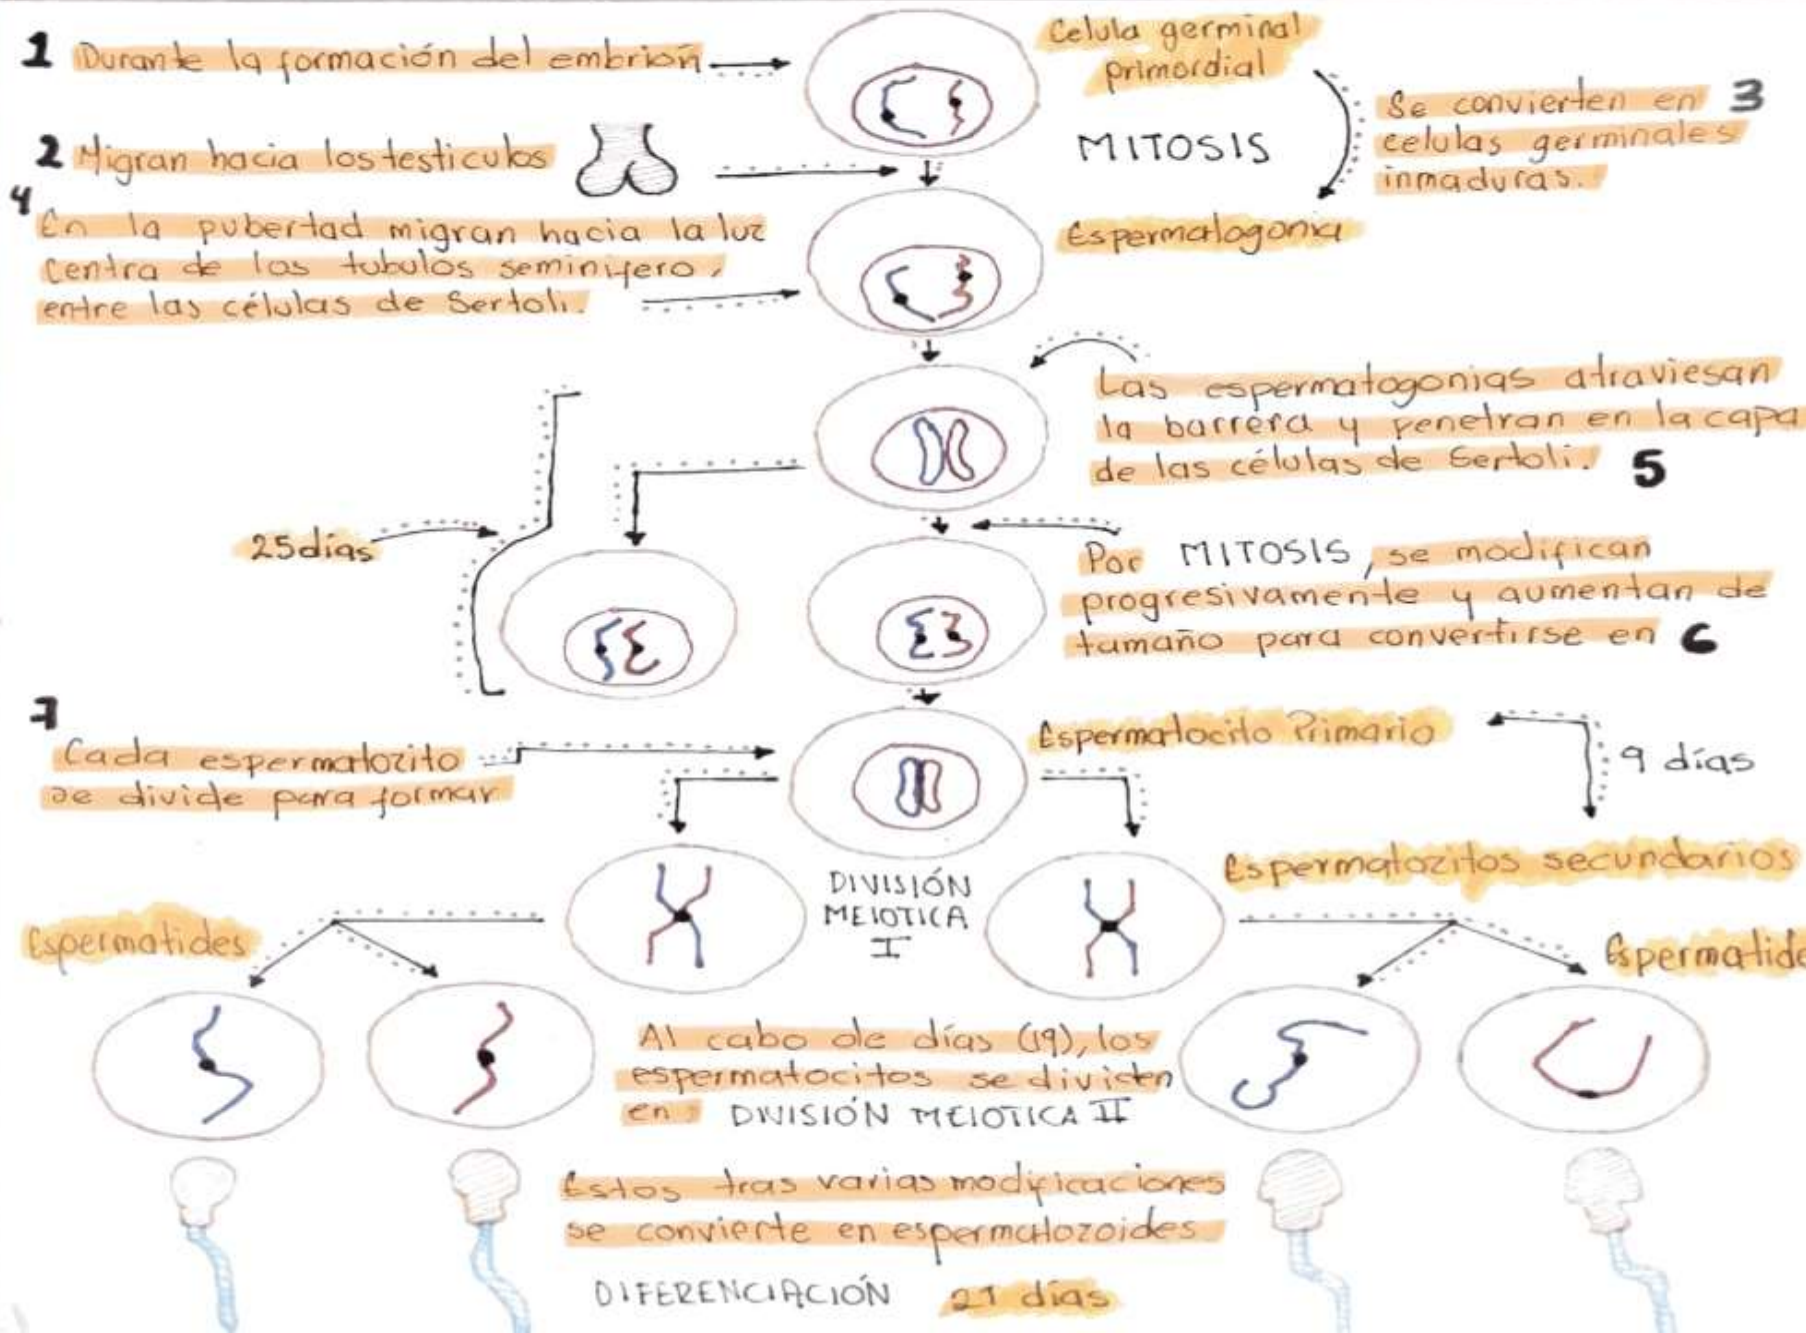 1 Durante la formación del embrión
Celula germinal
primordial
Se convierten en 3
celulas germinales
inmaduras.
MITOSIS
2 Migran hacia los testiculos
4
En la pubertad migran hacia la luz
centra de los tubulos seminifero,
entre las células de Sertoli.
Espermatogonia
Las espermatogonias atraviesan
la barrera y penetran en la capa
de las células de Sertoli. 5
25 días
Por MITOSIS, se modifican
progresivamente y aumentan de
tamaño para convertirse en 6
7
Cada espermatozito
se divide para formar
Espermatocito Primario
9 días
DIVISIÓN
MEIOTICA
I
Espermatozitos secundarios
Espermatides
Espermatide
Al cabo de días (19), los
espermatocitos se dividen
en: DIVISIÓN MEIOTICA II
Estos tras varias modificaciones
se convierte en espermatozoides
DIFERENCIACIÓN 21 días